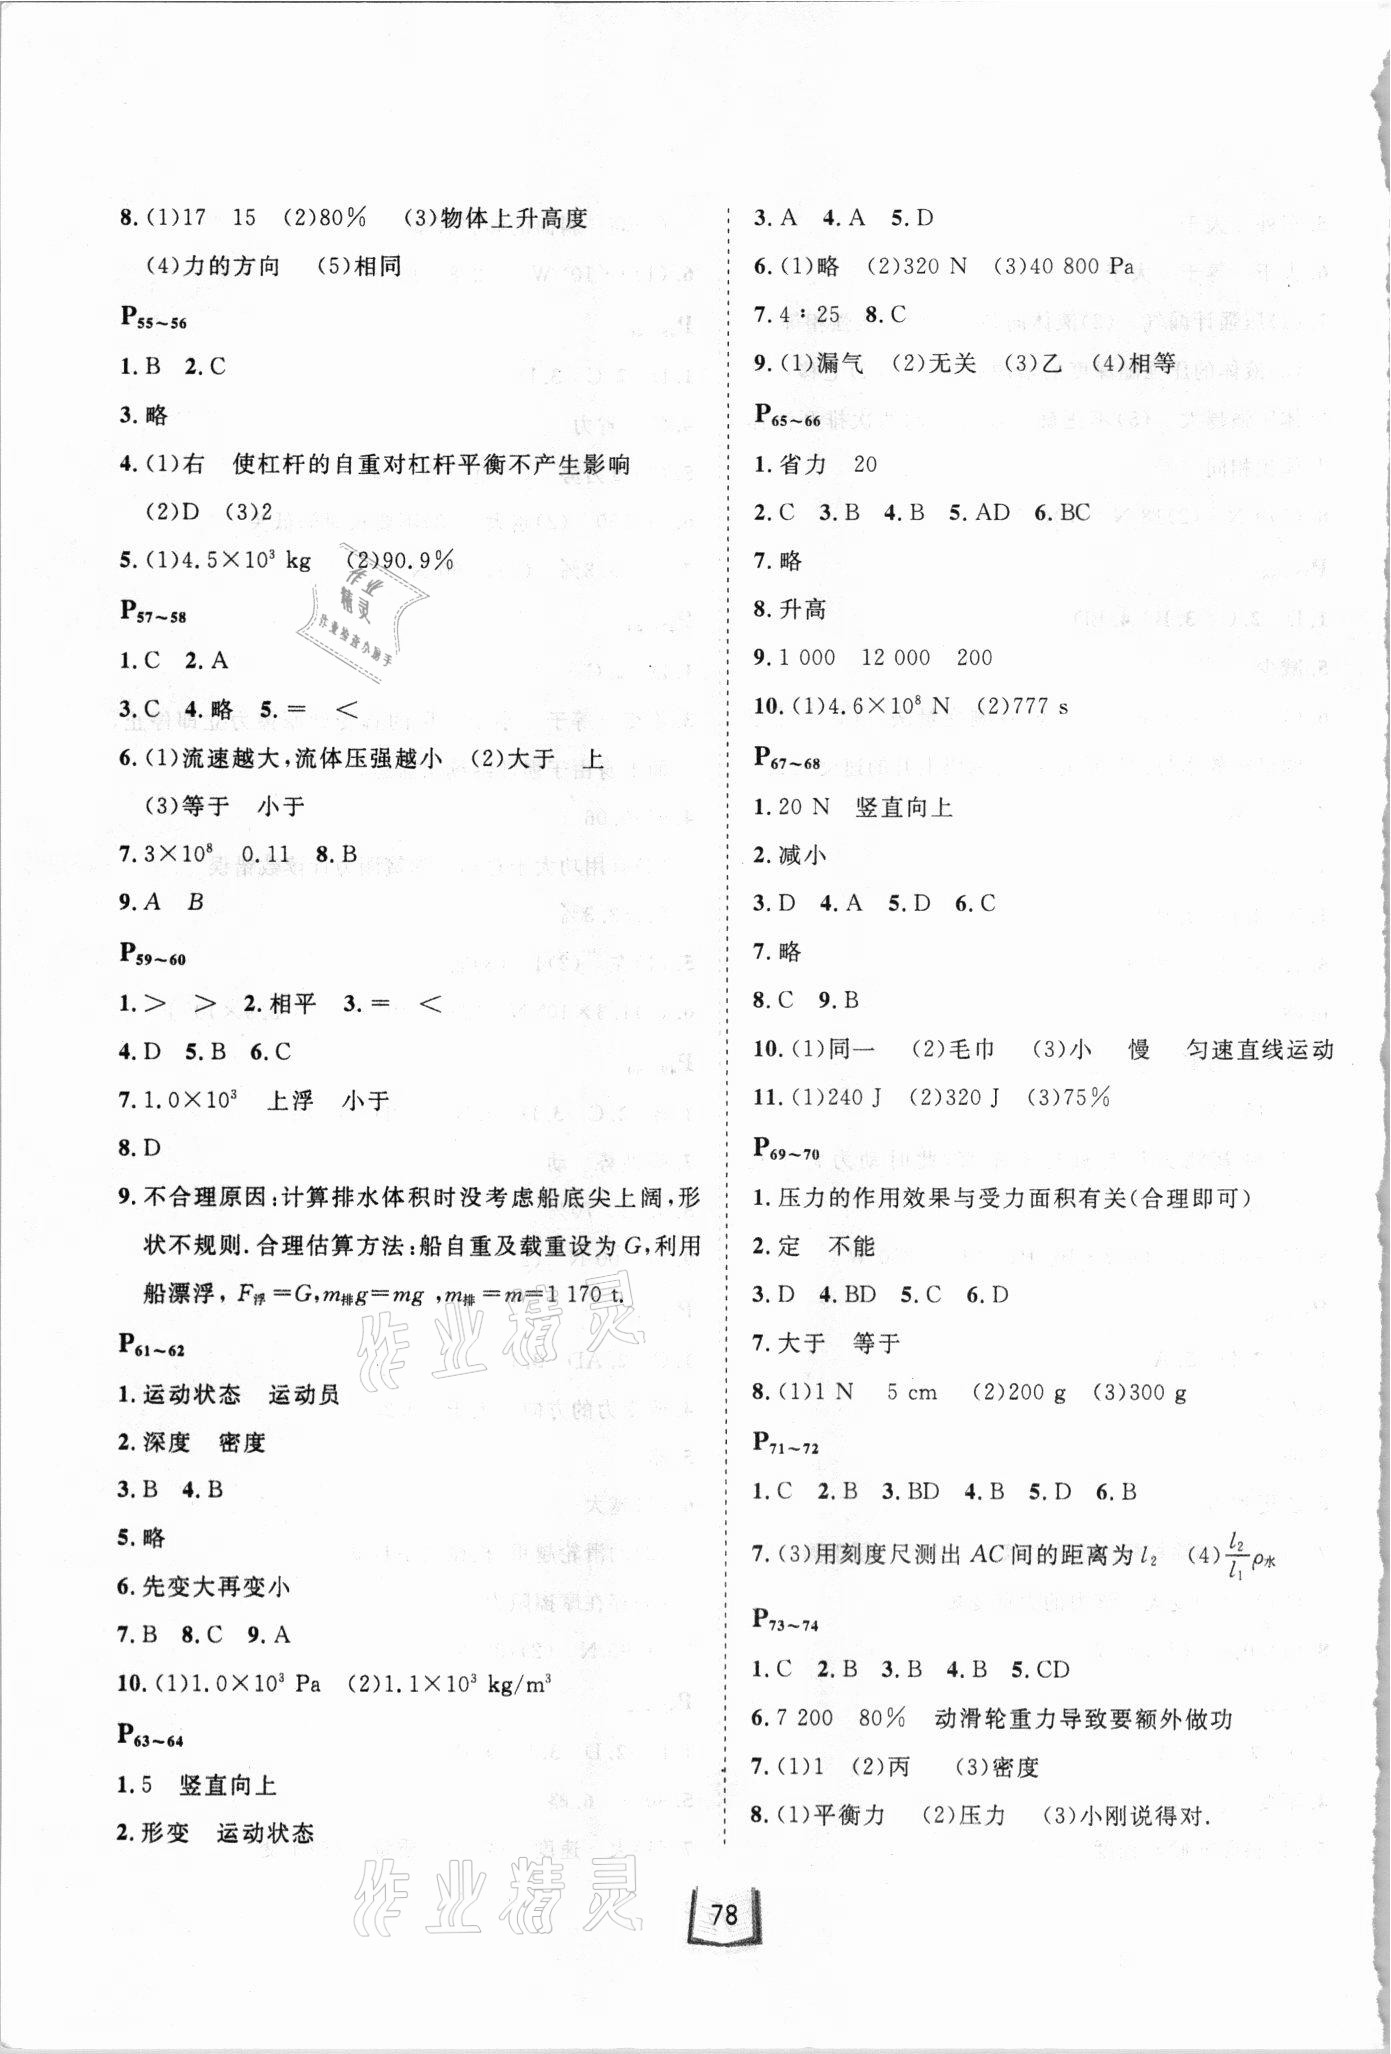 8.(1)17　15　(2)80%　(3)物体上升高度
(4)力的方向　(5)相同
P55~56
1.B　2.C
3.略
4.(1)右　使杠杆的自重对杠杆平衡不产生影响
(2)D　(3)2
5.(1)4.5×10³ kg　(2)90.9%
P57~58
1.C　2.A
3.C　4.略　5.＝　＜
6.(1)流速越大,流体压强越小　(2)大于　上
(3)等于　小于
7.3×10⁸　0.11　8.B
9.A　B
P59~60
1.＞　＞　2.相平　3.＝　＜
4.D　5.B　6.C
7.1.0×10³　上浮　小于
8.D
9.不合理原因:计算排水体积时没考虑船底尖上阔,形
状不规则.合理估算方法:船自重及载重设为G,利用
船漂浮，F浮=G,m排g=mg,m排=m=1 170 t.
P61~62
1.运动状态　运动员
2.深度　密度
3.B　4.B
5.略
6.先变大再变小
7.B　8.C　9.A
10.(1)1.0×10³ Pa　(2)1.1×10³ kg/m³
P63~64
1.5　竖直向上
2.形变　运动状态
3.A　4.A　5.D
6.(1)略　(2)320 N　(3)40 800 Pa
7.4∶25　8.C
9.(1)漏气　(2)无关　(3)乙　(4)相等
P65~66
1.省力　20
2.C　3.B　4.B　5.AD　6.BC
7.略
8.升高
9.1 000　12 000　200
10.(1)4.6×10⁸ N　(2)777 s
P67~68
1.20 N　竖直向上
2.减小
3.D　4.A　5.D　6.C
7.略
8.C　9.B
10.(1)同一　(2)毛巾　(3)小　慢　匀速直线运动
11.(1)240 J　(2)320 J　(3)75%
P69~70
1.压力的作用效果与受力面积有关(合理即可)
2.定　不能
3.D　4.BD　5.C　6.D
7.大于　等于
8.(1)1 N　5 cm　(2)200 g　(3)300 g
P71~72
1.C　2.B　3.BD　4.B　5.D　6.B
7.(3)用刻度尺测出AC间的距离为l₂　(4)l₂/l₁ρ水
P73~74
1.C　2.B　3.B　4.B　5.CD
6.7 200　80%　动滑轮重力导致要额外做功
7.(1)1　(2)丙　(3)密度
8.(1)平衡力　(2)压力　(3)小刚说得对.
78
作业
精灵
作业检查小助手
作业精灵
作业精灵